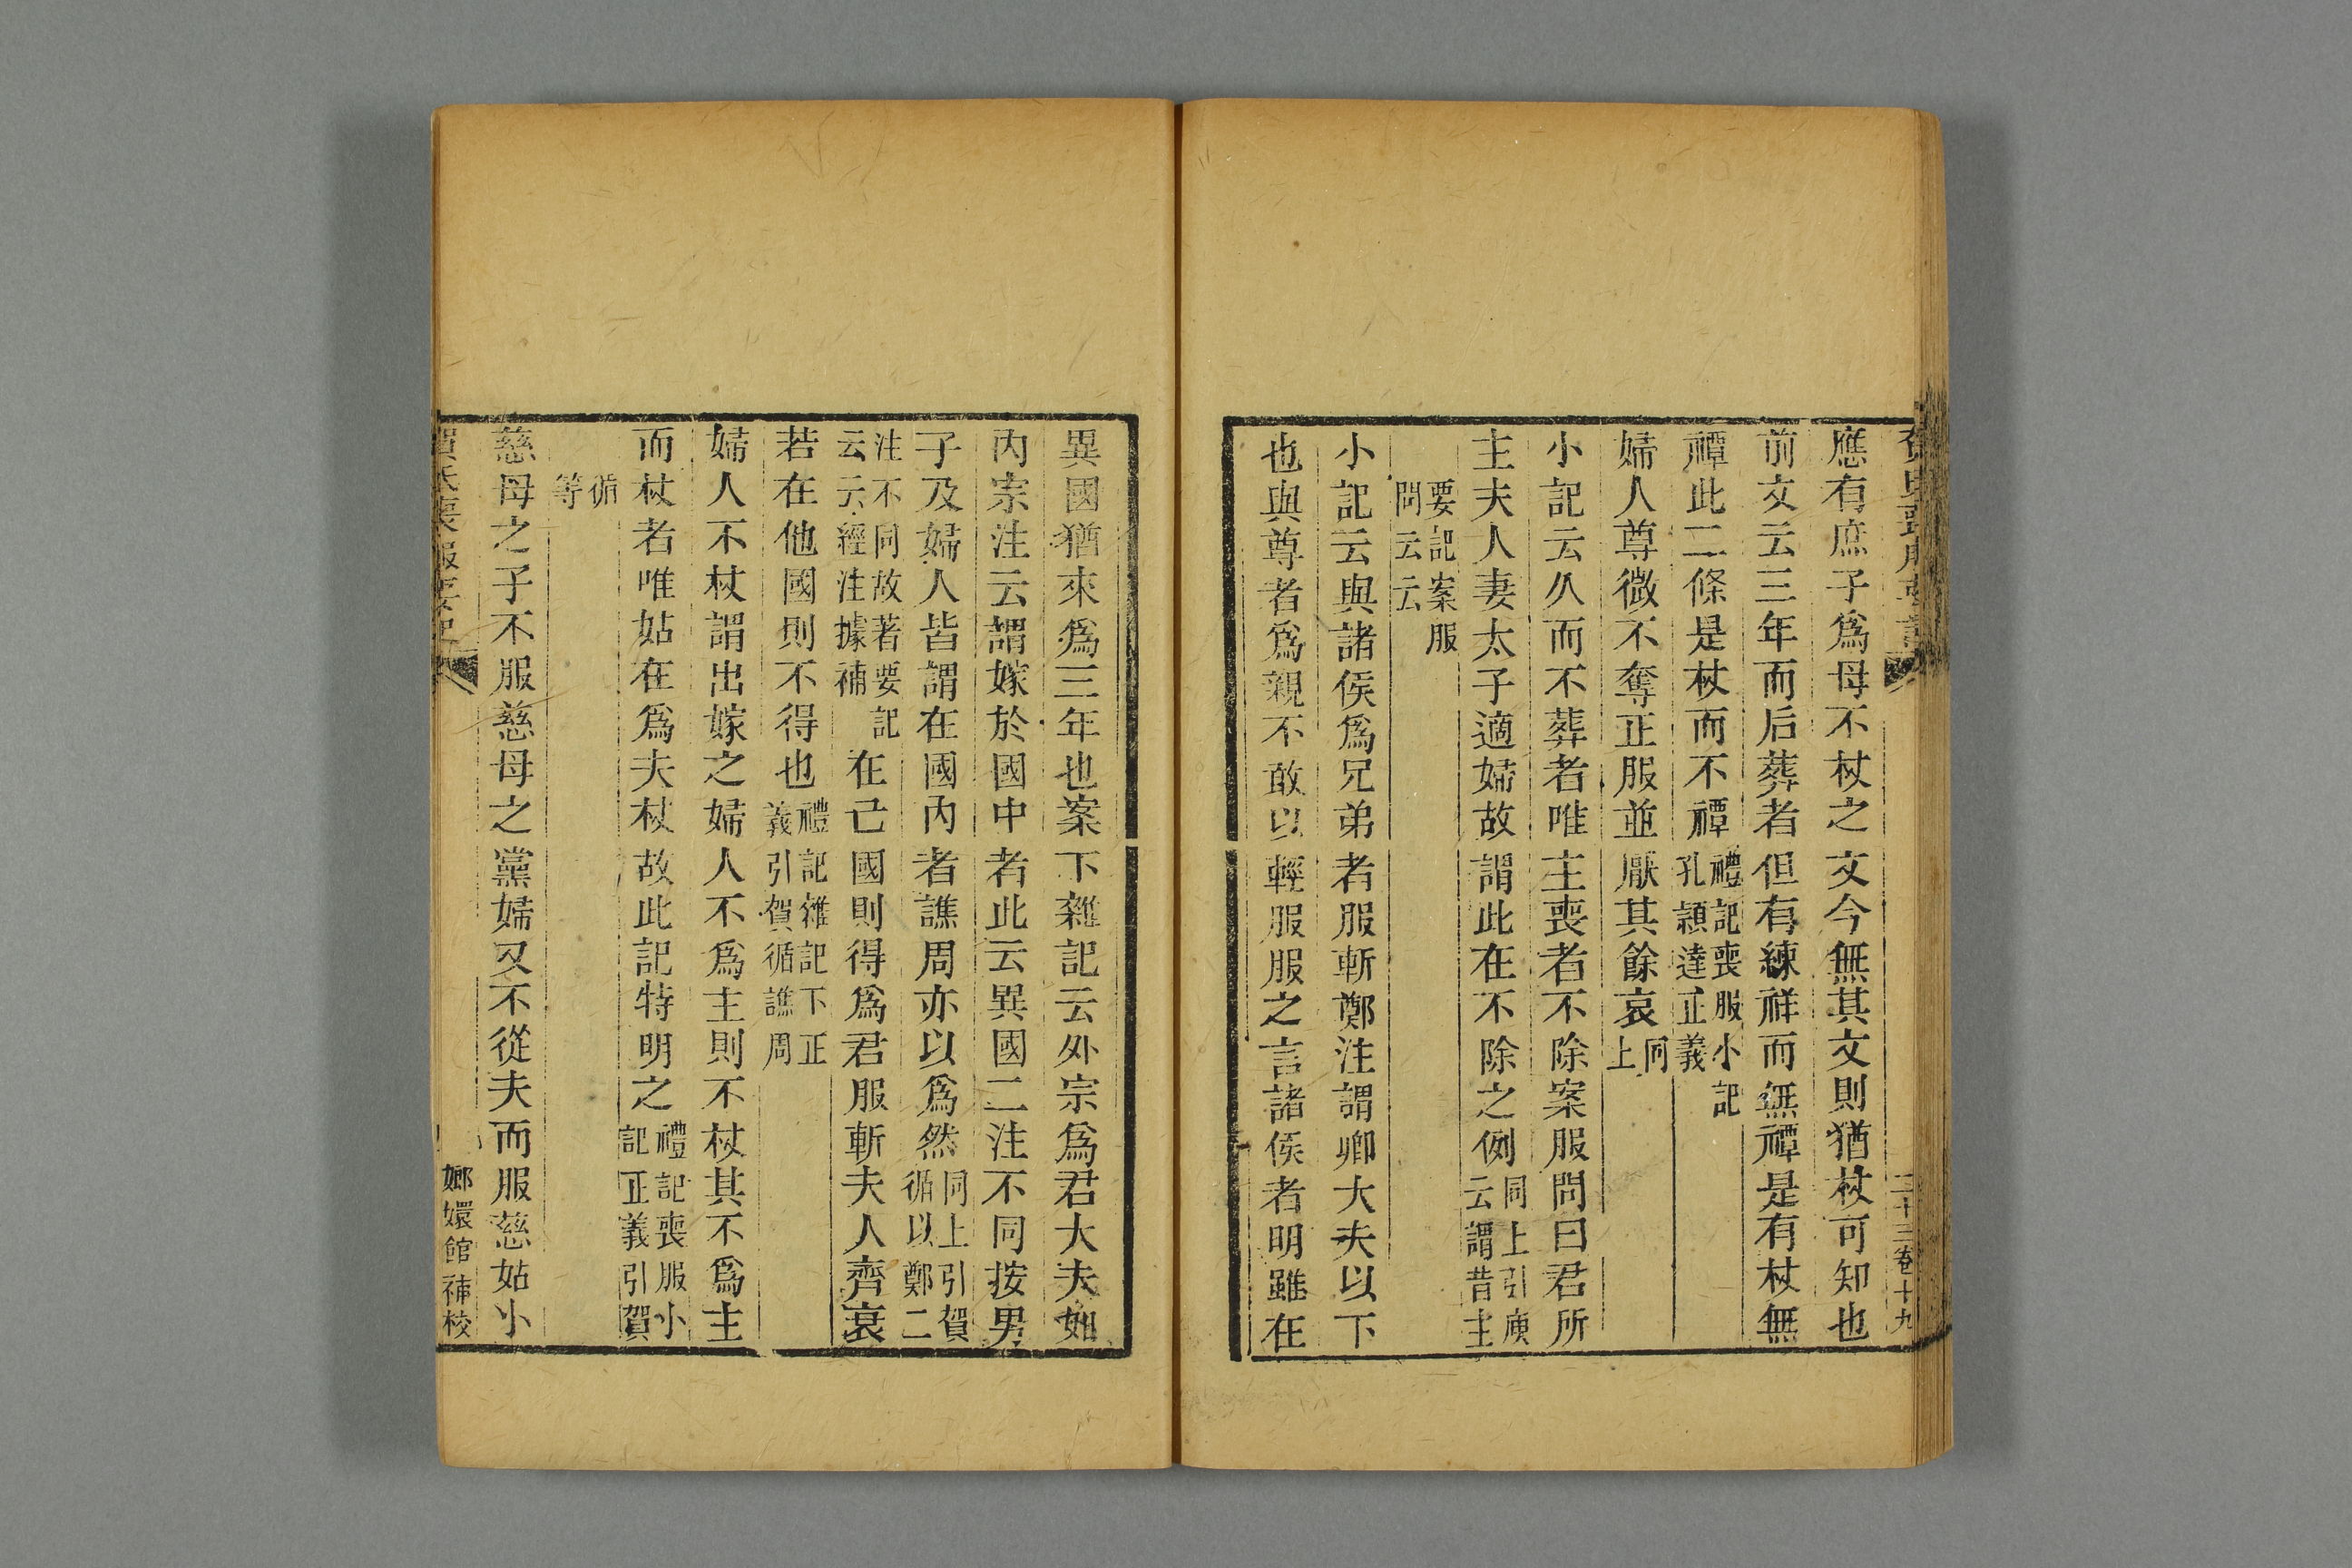 應有庶子爲母不杖之文今無其文則猶杖可知也
前文云三年而后葬者但有練祥而無禫是有杖無
禫此二條是杖而不禫禮記喪服小記孔穎達正義
婦人尊微不奪正服並厭其餘哀同上
小記云久而不葬者唯主喪者不除案服問曰君所
主夫人妻太子適婦故謂此在不除之例同上引庾云謂昔主
要記案服問云云
小記云與諸侯爲兄弟者服斬鄭注謂卿大夫以下
也與尊者爲親不敢以輕服服之言諸侯者明雖在
二十三卷十九
異國猶來爲三年也案下雜記云外宗爲君大夫如
內宗注云謂嫁於國中者此云異國二注不同按男
子及婦人皆謂在國內者譙周亦以爲然同上引賀循以鄭二
注不同故著要記云云經注據補在己國則得爲君服斬夫人齊衰
若在他國則不得也禮記雜記下正義引賀循譙周
婦人不杖謂出嫁之婦人不爲主則不杖其不爲主
而杖者唯姑在爲夫杖故此記特明之禮記喪服小記正義引賀
循等
慈母之子不服慈母之黨婦又不從夫而服慈姑小
賀氏喪服要記
嫏嬛館補校